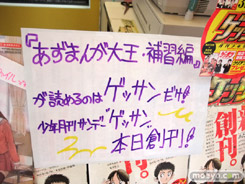 『あずまんが大王・補習編』
が読めるのはゲッサンだけ!
少年月刊サンデーゲッサン、
本日創刊!!
ゲッサン
創刊。
創刊。
moeyo.com